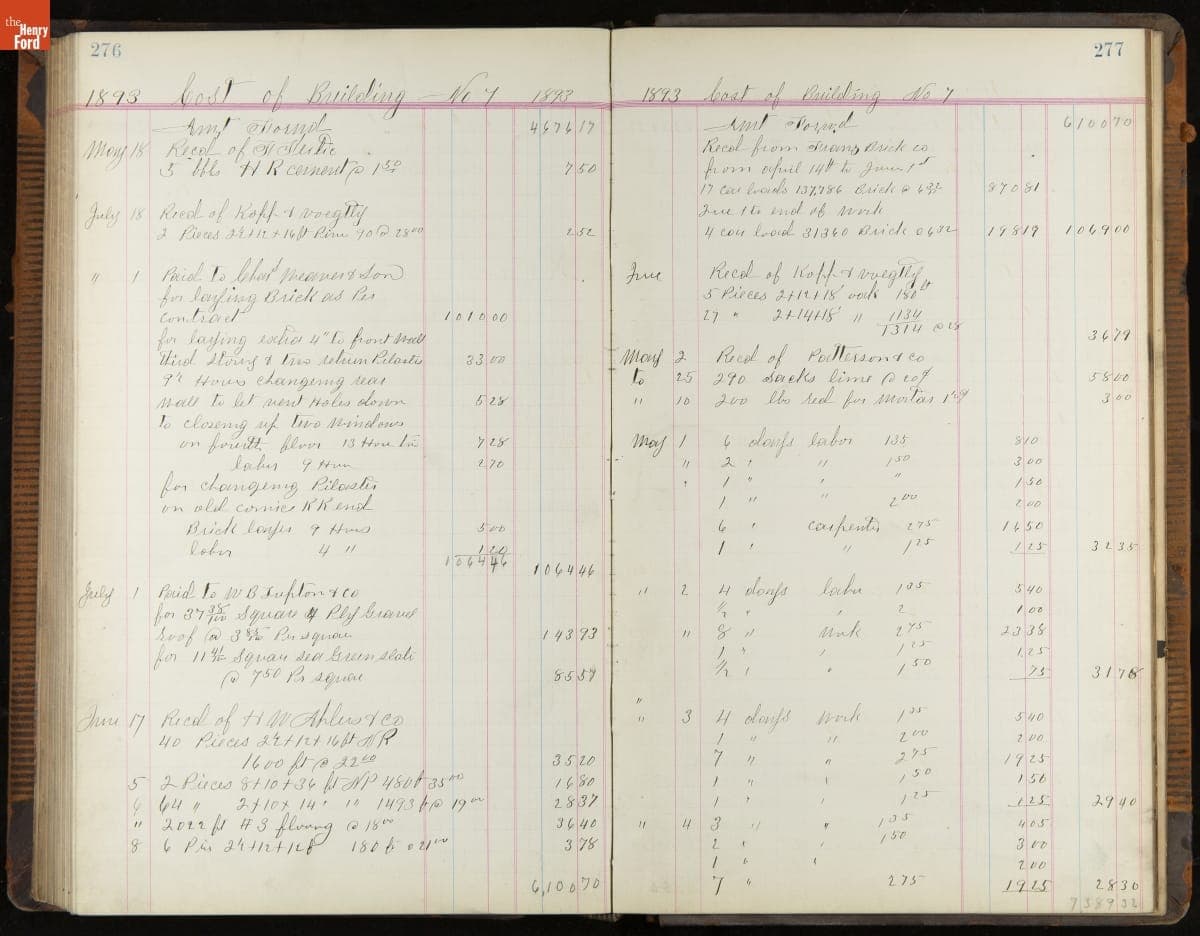 the Henry Ford
276
1893 Cost of Building - No 7 1893
Amt Forwd 4676 17
May 18 Recd of
5 bbls H R cement @ 1 50 7 50
July 18 Recd of Kopp & Voegtly
2 Pieces 2 12 + 16 ft Pine 90 @ 28 00 2 52
" 1 Paid to Chas Meaner & Son
for laying Brick as Per
contract 1010 00
for laying extra 4" to front wall
third Story & two return Pilasters 33 00
9 Hours changeing rear
wall to let vent Holes down 5 28
to closeing up two windows
on fourth floor 13 Hour 7 28
labor 9 Hour 2 70
for changeing Pilaster
on old cornice RR end
Brick layer 9 Hours 5 00
labor 4 " 1 20
1064 46 1064 46
July 1 Paid to W B Lupton & co
for 37 38/100 Square 4 Ply Gravel
Roof @ 3 85/100 Per square 143 93
for 11 41/100 Square sea Green slate
@ 7 50 Pr square 85 57
June 17 Recd of H W Ahlers & co
40 Pieces 2 + 12 + 16 ft
1600 ft @ 22 00 35 20
5 2 Pieces 8 + 10 + 36 ft 480 ft 35 00 16 80
6 64 " 2 + 10 x 14 " " 1493 ft @ 19 00 28 37
" 2022 ft #3 flooring @ 18 00 36 40
8 6 + 12 + 12 180 ft @ 21 00 3 78
6,100 70
277
1893 Cost of Building No 7
Amt Forwd 6100 70
Recd from Brick co
from april 14th to June 1st
17 car loads 137,786 Brick @ 6 32 870 81
June 1 to end of work
4 car load 31360 Brick @ 6 32 198 19 1069 00
June Recd of Kopp & Voegtly
5 Pieces 2 + 12 + 18' oak 180 ft
27 " 2 + 14 + 18' " 1134
1314 @ 28 36 79
May 2 Recd of Patterson & co
to 25 290 Sacks lime @ 20¢ 58 00
" 10 200 lbs red for Mortar 3 00
May 1 6 days labor 1 35 8 10
" 2 " " 1 50 3 00
" 1 " " " 1 50
1 " " 2 00 2 00
6 " carpenter 2 75 16 50
1 " " 1 25 1 25 32 35
" 2 4 days labor 1 35 5 40
1/2 " " 2 1 00
" 8 " Work 2 75 23 38
1 " " 1 25 1 25
1/2 " " 1 50 75 31 78
"
" 3 4 days Work 1 35 5 40
1 " " 2 00 2 00
7 " " 2 75 19 25
1 " " 1 50 1 50
1 " " 1 25 1 25 29 40
" 4 3 " " 1 35 4 05
2 " " 1 50 3 00
1 " " 2 00
7 " 2 75 19 25 28 30
7389 32